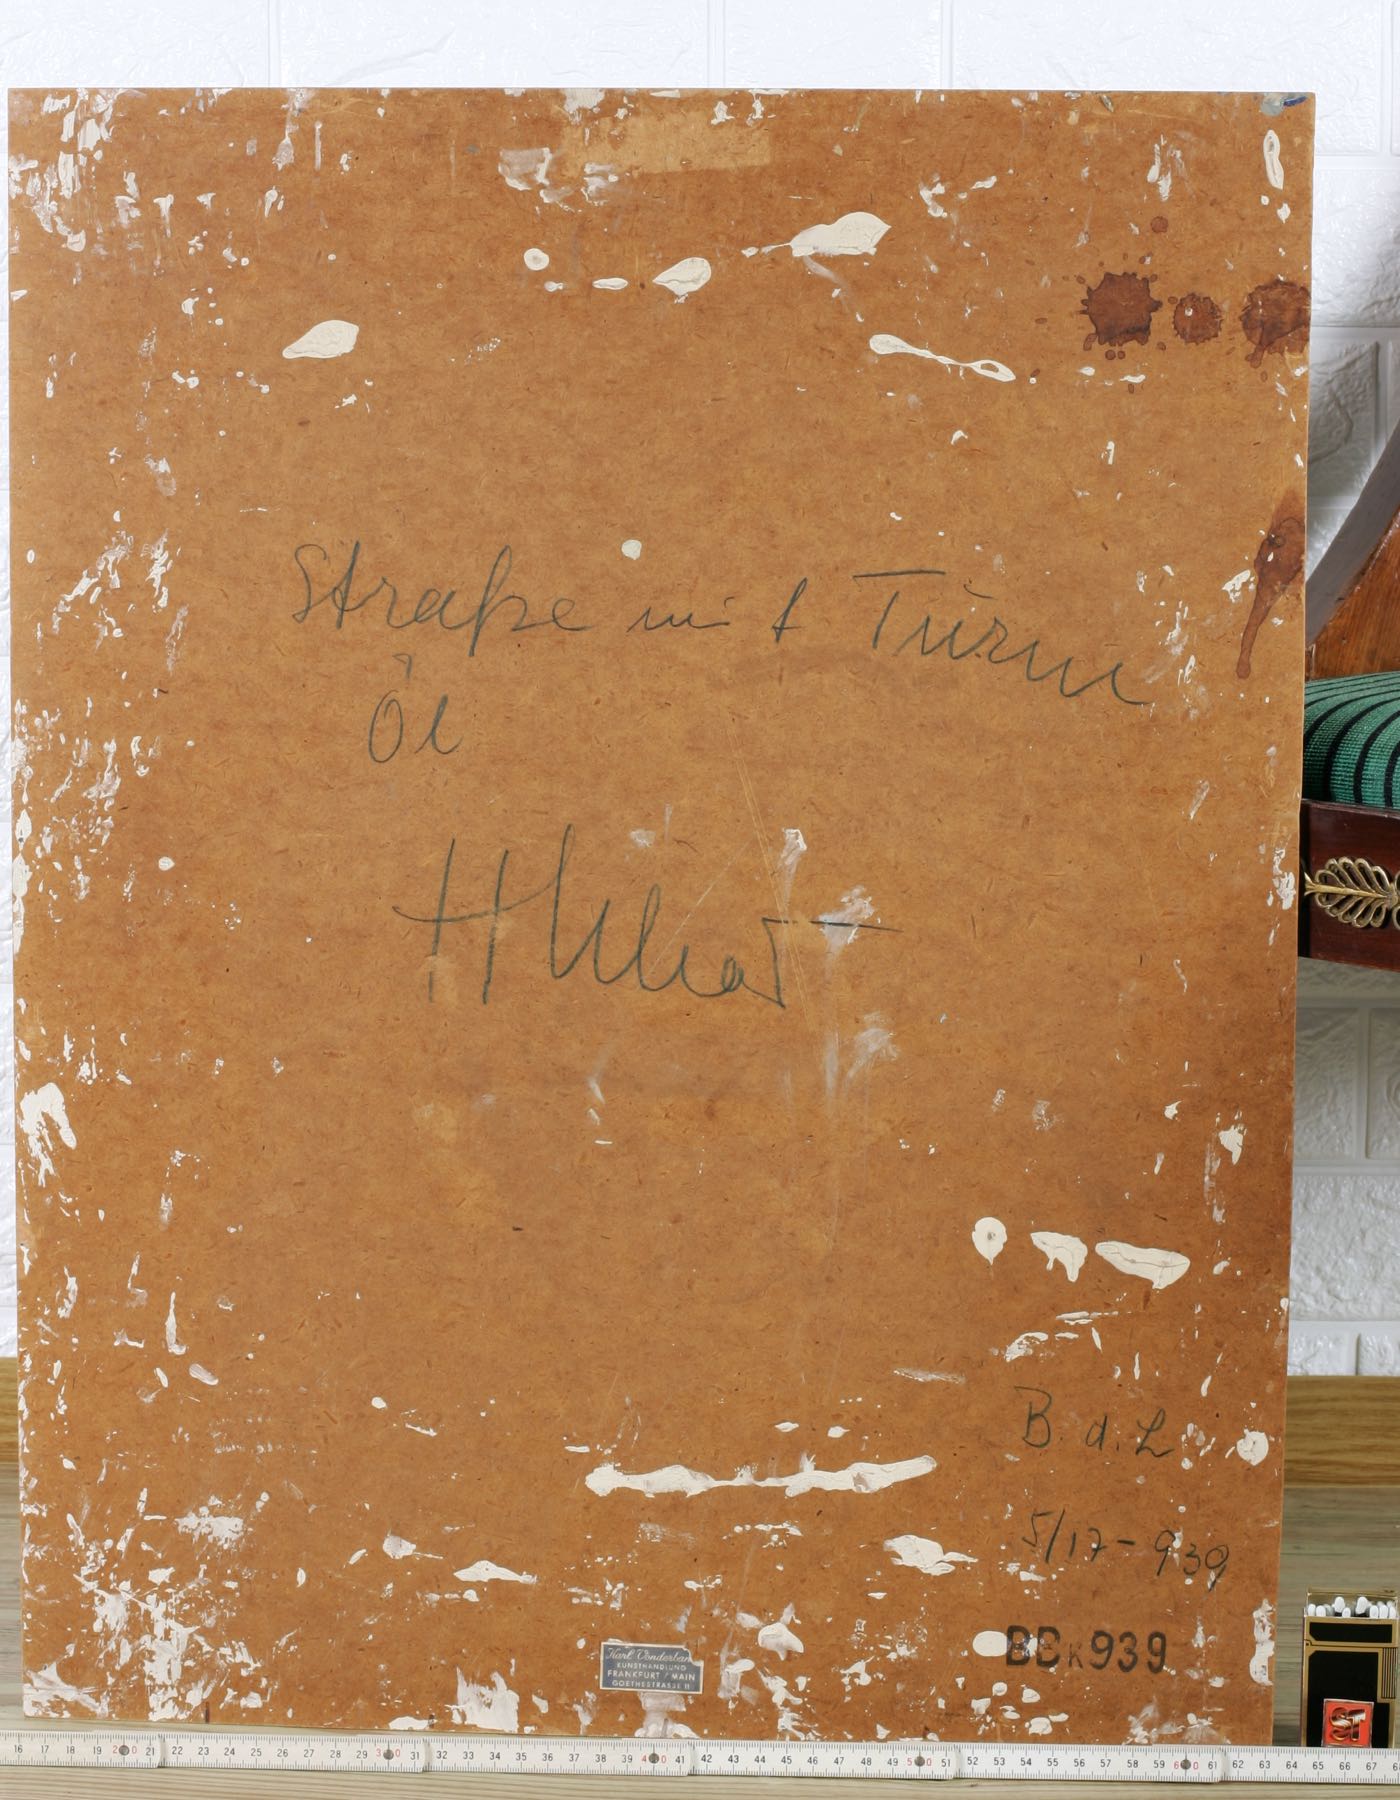 Straße mit Turm
Öl
B. d. L
5/17-939
BBK939
Karl Vonderbank
KUNSTHANDLUNG
FRANKFURT / MAIN
GOETHESTRASSE 11
16 17 18 19 20 21 22 23 24 25 26 27 28 29 30 31 32 33 34 35 36 37 38 39 40 41 42 43 44 45 46 47 48 49 50 51 52 53 54 55 56 57 58 59 60 61 62 63 64 65 66 67
ST